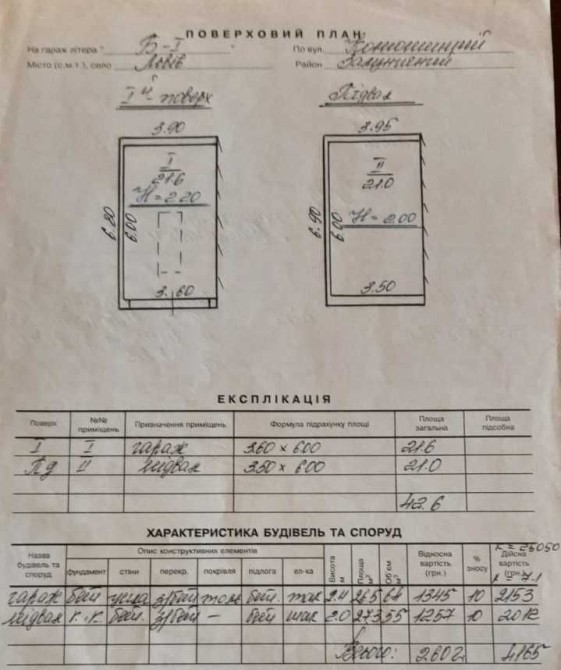 ПОВЕРХОВИЙ ПЛАН:
На гараж літера " Б-I " По вул.
Місто (с.м.т.), село Львів Район Залізничний
I й поверх Підвал
3.90 3.95
I II
21.6 21.0
H=2.20 H=2.00
6.00 6.90 6.00
3.60 3.50
ЕКСПЛІКАЦІЯ
Поверх №№ приміщень Призначення приміщень Формула підрахунку площі Площа загальна Площа підсобна
I I гараж 3.60 × 6.00 21.6
Пд II підвал 3.50 × 6.00 21.0
42.6
ХАРАКТЕРИСТИКА БУДІВЕЛЬ ТА СПОРУД
Назва будівель та споруд Опис конструктивних елементів Висота м Площа м² Об'єм м³ Відносна вартість (грн.) % зносу Дійсна вартість (грн.)
фундамент стіни перекр. покрівля підлога ел-ка
к = 25050
гараж бет. цегла з/бет толь бет. 2.4 26.5 64 1345 10 2153
підвал к.-к. бет. з/бет — бет 2.0 27.3 55 1257 10 2012
Всього: 2602 4165